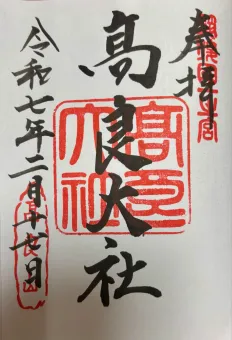 奉拝
高良大社
令和七年二月十七日
高良大社